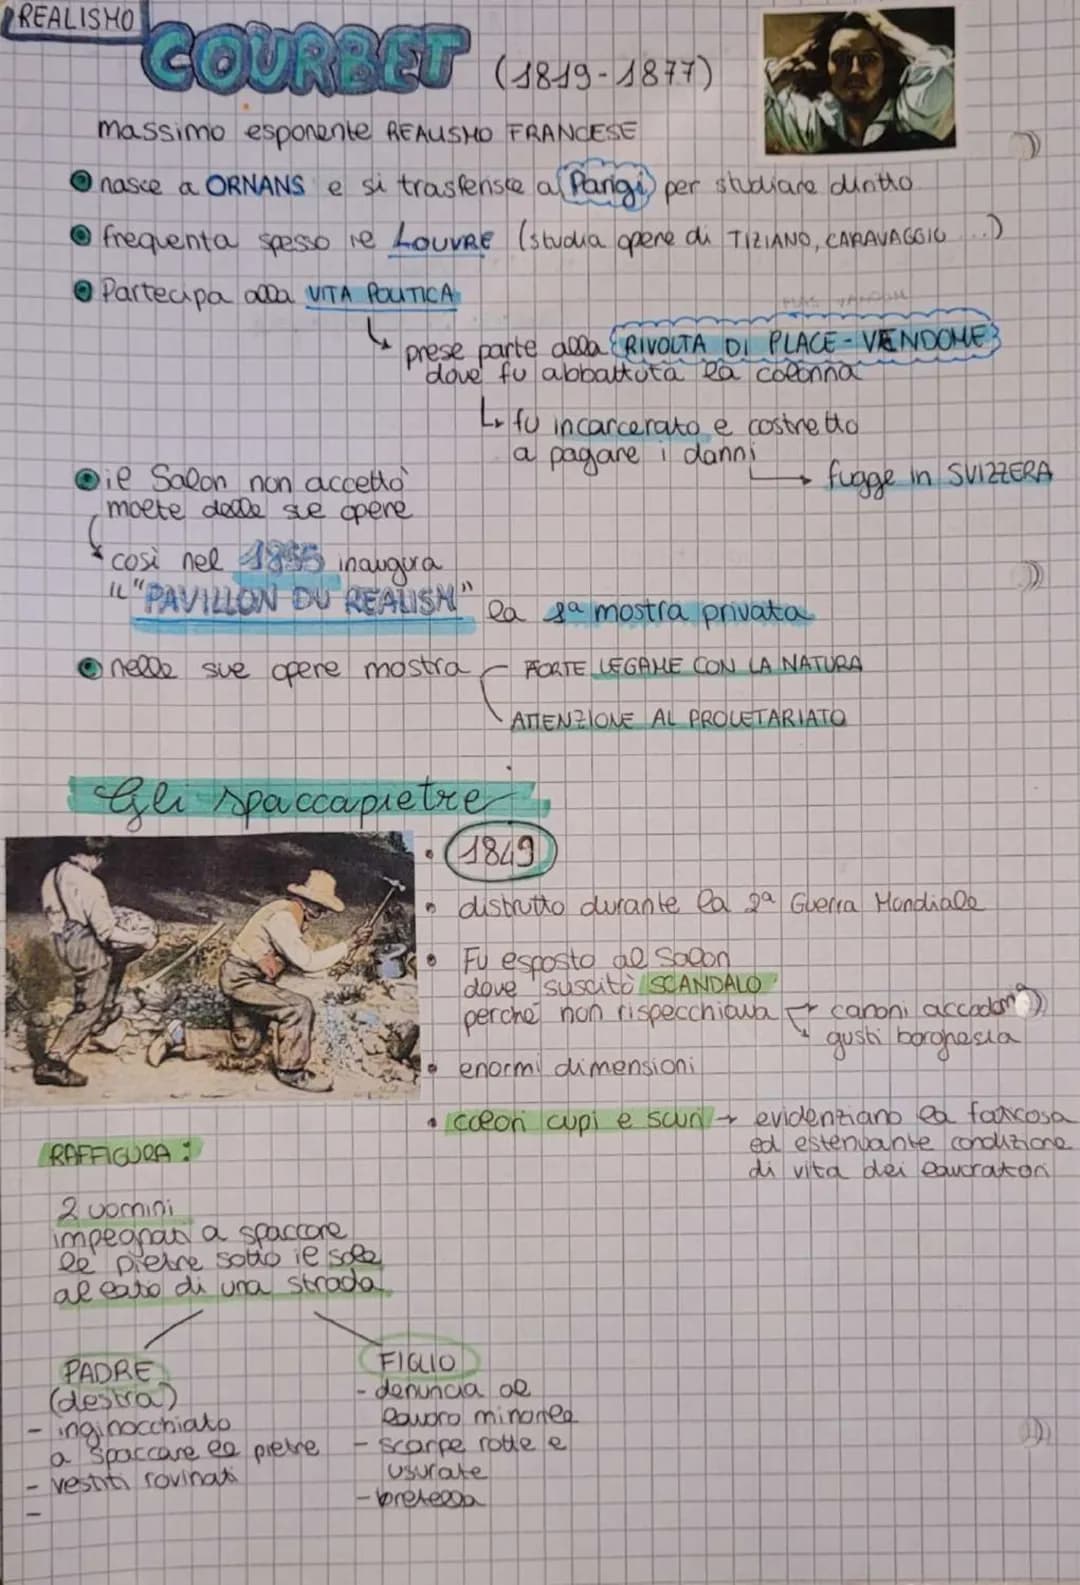 REALISMO
COURBET (1819-1877)
massimo esponente REALISMO FRANCESE
nasce a ORNANS e si trasferisce a Parigi per studiare diritto
frequenta spesso il LOUVRE (studia opere di TIZIANO, CARAVAGGIO ...)
Partecipa alla VITA POLITICA
prese parte alla RIVOLTA DI PLACE-VENDOME
dove fu abbattuta la colonna
fu incarcerato e costretto
a pagare i danni
fugge in SVIZZERA
il Salon non accettò
molte delle sue opere
così nel 1855 inaugura
IL "PAVILLON DU REALISM" la 1ª mostra privata
nelle sue opere mostra
FORTE LEGAME CON LA NATURA
ATTENZIONE AL PROLETARIATO
Gli spaccapietre
1849
distrutto durante la 2ª Guerra Mondiale
Fu esposto al Salon
dove suscitò SCANDALO
perché non rispecchiava → canoni accadem
gusti borghesia
enormi dimensioni
colori cupi e scuri → evidenziano la faticosa
ed estenuante condizione
di vita dei lavoratori
RAFFIGURA:
2 uomini
impegnati a spaccare
le pietre sotto il sole
al lato di una strada
PADRE
(destra)
- inginocchiato
a spaccare le pietre
- vestiti rovinati
-
FIGLIO
- denuncia al
lavoro minorile
- scarpe rotte e
usurate
- bretella